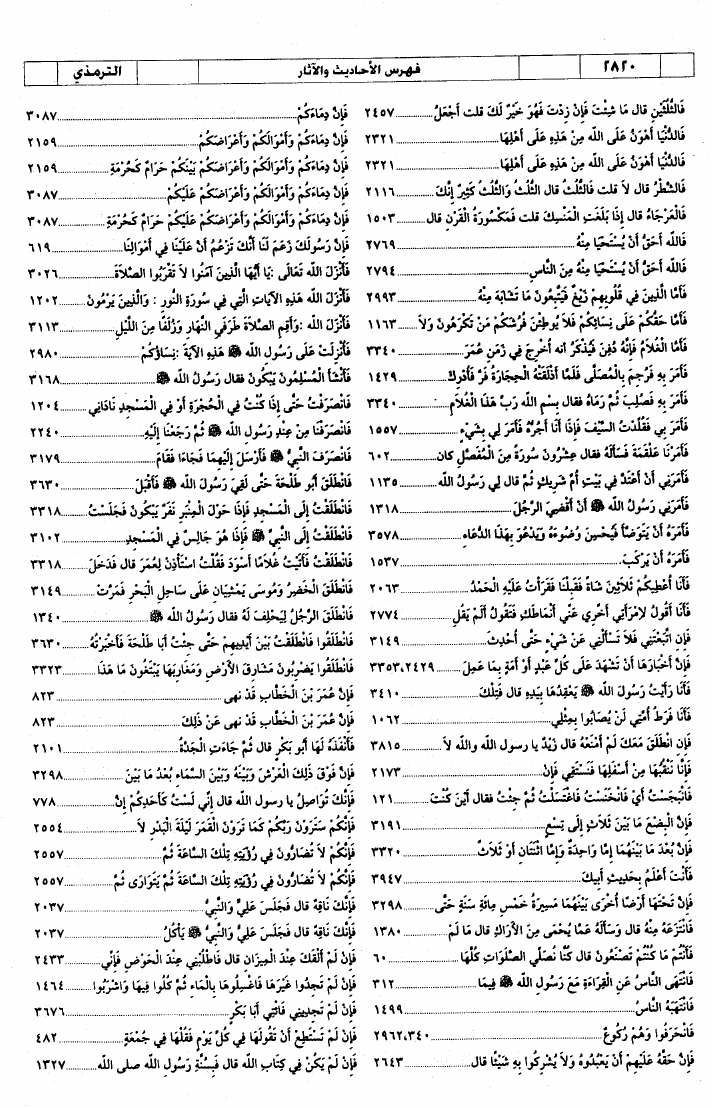 ٢٨٢٠
فهرس الأحاديث والآثار
الترمذي
فَالثُّلُثَيْنِ قال مَا شِئْتَ فَإِنْ زِدْتَ فَهُوَ خَيْرٌ لَكَ قلت أَجْعَلُ ٢٤٥٧
فَالدُّنْيَا أَهْوَنُ عَلَى الله مِنْ هَذِهِ عَلَى أَهْلِهَا ٢٣٢١
فَالدُّنْيَا أَهْوَنُ عَلَى الله مِنْ هَذِهِ عَلَى أَهْلِهَا ٢٣٢١
فَالشَّطْرُ قال لاَ قلت فَالثُّلُثُ قال الثُّلُثُ وَالثُّلُثُ كَثِيرٌ إِنَّكَ ٢١١٦
فَالْعَرْجَاءُ قال إِذَا بَلَغَتِ الْمَنْسِكَ قلت فَمَكْسُورَةُ الْقَرْنِ قال ١٥٠٣
فَالله أَحَقُّ أَنْ يُسْتَحْيَا مِنْهُ ٢٧٦٩
فَالله أَحَقُّ أَنْ يُسْتَحْيَا مِنْهُ مِنَ النَّاسِ ٢٧٩٤
فَأَمَّا الَّذِينَ فِي قُلُوبِهِمْ زَيْغٌ فَيَتَّبِعُونَ مَا تَشَابَهَ مِنْهُ ٢٩٩٣
فَأَمَّا حَقُّكُمْ عَلَى نِسَائِكُمْ فَلاَ يُوطِئْنَ فُرُشَكُمْ مَنْ تَكْرَهُونَ وَلاَ ١١٦٣
فَأَمَّا الْغُلاَمُ فَإِنَّهُ دُفِنَ فَيُذْكَرُ أنه أُخْرِجَ فِي زَمَنِ عُمَرَ ٣٣٤٠
فَأَمَرَ بِهِ فَرُجِمَ بِالْمُصَلَّى فَلَمَّا أَذْلَقَتْهُ الْحِجَارَةُ فَرَّ فَأُدْرِكَ ١٤٢٩
فَأَمَرَ بِهِ فَصُلِبَ ثُمَّ رَمَاهُ فقال بِسْمِ الله رَبِّ هَذَا الْغُلاَمِ ٣٣٤٠
فَأَمَرَ بِي فَقُلِّدْتُ السَّيْفَ فَإِذَا أَنَا أَجُرُّهُ فَأَمَرَ لِي بِشَيْءٍ ١٥٥٧
فَأَمَرْنَا عَلْقَمَةَ فَسَأَلَهُ فقال عِشْرُونَ سُورَةً مِنَ الْمُفَصَّلِ كان ٦٠٢
فَأَمَرَنِي أَنْ أَعْتَدَّ فِي بَيْتِ أُمِّ شَرِيكٍ ثُمَّ قال لِي رَسُولُ الله ١١٣٥
فَأَمَرَنِي رَسُولُ الله ﷺ أَنْ أَقْضِيَ الرَّجُلَ ١٣١٨
فَأَمَرَهُ أَنْ يَتَوَضَّأَ فَيُحْسِنَ وُضُوءَهُ وَيَدْعُوَ بِهَذَا الدُّعَاءِ ٣٥٧٨
فَأَمَرَهُ أَنْ يَرْكَبَ. ١٥٣٧
فَأَنَا أُعْطِيكُمْ ثَلاَثِينَ شَاةً فَقَبِلْنَا فَقَرَأْتُ عَلَيْهِ الْحَمْدُ ٢٠٦٣
فَأَنَا أَقُولُ لاِمْرَأَتِي أَخِّرِي عَنِّي أَنْمَاطَكِ فَتَقُولُ أَلَمْ يَقُلِ ٢٧٧٤
فَإِنِ اتَّبَعْتَنِي فَلاَ تَسْأَلْنِي عَنْ شَيْءٍ حَتَّى أُحْدِثَ ٣١٤٩
فَإِنَّ أَخْبَارَهَا أَنْ تَشْهَدَ عَلَى كُلِّ عَبْدٍ أَوْ أَمَةٍ بِمَا عَمِلَ ٣٣٥٣،٢٤٢٩
فَأَنَا رَأَيْتُ رَسُولَ الله ﷺ يَعْقِدُهَا بِيَدِهِ قال فَتِلْكَ ٣٤١٠
فَأَنَا فَرَطُ أُمَّتِي لَنْ يُصَابُوا بِمِثْلِي ١٠٦٢
فَإِنِ انْطَلَقَ مَعَكَ لَمْ أَمْنَعْهُ قال زَيْدٌ يا رسول الله والله لاَ ٣٨١٥
فَإِنَّا نَنْقُبُهَا مِنْ أَسْفَلِهَا فَنَسْتَقِي فَإِنْ ٢١٧٣
فَانْبَجَسْتُ أَيْ فَانْخَنَسْتُ فَاغْتَسَلْتُ ثُمَّ جِئْتُ فقال أَيْنَ كُنْتَ ١٢١
فَإِنَّ الْبِضْعَ مَا بَيْنَ ثَلاَثٍ إِلَى تِسْعٍ ٣١٩١
فَإِنَّ بُعْدَ مَا بَيْنَهُمَا إِمَّا وَاحِدَةٌ وَإِمَّا اثْنَتَانِ أَوْ ثَلاَثٌ ٣٣٢٠
فَأَنْتَ أَعْلَمُ بِحَدِيثِ أَبِيكَ ٣٩٤٧
فَإِنَّ تَحْتَهَا أَرْضًا أُخْرَى بَيْنَهُمَا مَسِيرَةُ خَمْسِ مِائَةِ سَنَةٍ حَتَّى ٣٢٩٨
فَانْتَزَعَهُ مِنْهُ قال وَسَأَلَهُ عَمَّا يُحْمَى مِنَ الأَرَاكِ قال مَا لَمْ ١٣٨٠
فَأَنْتُمْ مَا كُنْتُمْ تَصْنَعُونَ قال كُنَّا نُصَلِّي الصَّلَوَاتِ كُلَّهَا ٦٠
فَانْتَهَى النَّاسُ عَنِ الْقِرَاءَةِ مَعَ رَسُولِ الله ﷺ فِيمَا ٣١٢
فَانْتَهَبَهُ النَّاسُ ١٤٩٩
فَانْحَرَفُوا وَهُمْ رُكُوعٌ ٢٩٦٢،٣٤٠
فَإِنَّ حَقَّهُ عَلَيْهِمْ أَنْ يَعْبُدُوهُ وَلاَ يُشْرِكُوا بِهِ شَيْئًا قال ٢٦٤٣
فَإِنَّ دِمَاءَكُمْ ٣٠٨٧
فَإِنَّ دِمَاءَكُمْ وَأَمْوَالَكُمْ وَأَعْرَاضَكُمْ ٢١٥٩
فَإِنَّ دِمَاءَكُمْ وَأَمْوَالَكُمْ وَأَعْرَاضَكُمْ بَيْنَكُمْ حَرَامٌ كَحُرْمَةِ ٢١٥٩
فَإِنَّ دِمَاءَكُمْ وَأَمْوَالَكُمْ وَأَعْرَاضَكُمْ عَلَيْكُمْ ٣٠٨٧
فَإِنَّ دِمَاءَكُمْ وَأَمْوَالَكُمْ وَأَعْرَاضَكُمْ عَلَيْكُمْ حَرَامٌ كَحُرْمَةِ ٣٠٨٧
فَإِنَّ رَسُولَكَ زَعَمَ لَنَا أَنَّكَ تَزْعُمُ أَنَّ عَلَيْنَا فِي أَمْوَالِنَا ٦١٩
فَأَنْزَلَ الله تَعَالَى :يَا أَيُّهَا الَّذِينَ آمَنُوا لاَ تَقْرَبُوا الصَّلاَةَ ٣٠٢٦
فَأَنْزَلَ الله هَذِهِ الآيَاتِ الَّتِي فِي سُورَةِ النُّورِ : وَالَّذِينَ يَرْمُونَ ١٢٠٢
فَأَنْزَلَ الله :وَأَقِمِ الصَّلاَةَ طَرَفَيِ النَّهَارِ وَزُلَفًا مِنَ اللَّيْلِ ٣١١٣
فَأُنْزِلَتْ عَلَى رَسُولِ الله ﷺ هَذِهِ الآيَةَ :نِسَاؤُكُمْ ٢٩٨٠
فَأَنْشَأَ الْمُسْلِمُونَ يَبْكُونَ فقال رَسُولُ الله ﷺ ٣١٦٨
فَانْصَرَفْتُ حَتَّى إِذَا كُنْتُ فِي الْحُجْرَةِ أَوْ فِي الْمَسْجِدِ نَادَانِي ١٢٠٤
فَانْصَرَفْنَا مِنْ عِنْدِ رَسُولِ الله ﷺ ثُمَّ رَجَعْنَا إِلَيْهِ ٢٢٤٠
فَانْصَرَفَ النَّبِيُّ ﷺ فَأَرْسَلَ إِلَيْهِمَا فَجَاءَا فَقَامَ ٣١٧٩
فَانْطَلَقَ أَبُو طَلْحَةَ حَتَّى لَقِيَ رَسُولَ الله ﷺ فَأَقْبَلَ ٣٦٣٠
فَانْطَلَقْتُ إِلَى الْمَسْجِدِ فَإِذَا حَوْلَ الْمِنْبَرِ نَفَرٌ يَبْكُونَ فَجَلَسْتُ ٣٣١٨
فَانْطَلَقْتُ إِلَى النَّبِيِّ ﷺ فَإِذَا هُوَ جَالِسٌ فِي الْمَسْجِدِ ٣١٠٢
فَانْطَلَقْتُ فَأَتَيْتُ غُلاَمًا أَسْوَدَ فَقُلْتُ اسْتَأْذِنْ لِعُمَرَ قال فَدَخَلَ ٣٣١٨
فَانْطَلَقَ الْخَضِرُ وَمُوسَى يَمْشِيَانِ عَلَى سَاحِلِ الْبَحْرِ فَمَرَّتْ ٣١٤٩
فَانْطَلَقَ الرَّجُلُ لِيَحْلِفَ لَهُ فقال رَسُولُ الله ﷺ ١٣٤٠
فَانْطَلَقُوا فَانْطَلَقْتُ بَيْنَ أَيْدِيهِمْ حَتَّى جِئْتُ أَبَا طَلْحَةَ فَأَخْبَرْتُهُ ٣٦٣٠
فَانْطَلَقُوا يَضْرِبُونَ مَشَارِقَ الأَرْضِ وَمَغَارِبَهَا يَبْتَغُونَ مَا هَذَا ٣٣٢٣
فَإِنَّ عُمَرَ بْنَ الْخَطَّابِ قَدْ نهى ٨٢٣
فَإِنَّ عُمَرَ بْنَ الْخَطَّابِ قَدْ نَهَى عَنْ ذَلِكَ ٨٢٣
فَأَنْفَذَهُ لَهَا أَبُو بَكْرٍ قال ثُمَّ جَاءَتِ الْجَدَّةُ ٢١٠١
فَإِنَّ فَوْقَ ذَلِكَ الْعَرْشَ وَبَيْنَهُ وَبَيْنَ السَّمَاءِ بُعْدُ مَا بَيْنَ ٣٢٩٨
فَإِنَّكَ تُوَاصِلُ يا رسول الله قال إِنِّي لَسْتُ كَأَحَدِكُمْ إِنَّ ٧٧٨
فَإِنَّكُمْ سَتَرَوْنَ رَبَّكُمْ كَمَا تَرَوْنَ الْقَمَرَ لَيْلَةَ الْبَدْرِ لاَ ٢٥٥٤
فَإِنَّكُمْ لاَ تُضَارُّونَ فِي رُؤْيَتِهِ تِلْكَ السَّاعَةَ ثُمَّ ٢٥٥٧
فَإِنَّكُمْ لاَ تُضَارُّونَ فِي رُؤْيَتِهِ تِلْكَ السَّاعَةَ ثُمَّ يَتَوَارَى ثُمَّ ٢٥٥٧
فَإِنَّكَ نَاقِهٌ قال فَجَلَسَ عَلِيٌّ وَالنَّبِيُّ ٢٠٣٧
فَإِنَّكَ نَاقِهٌ قال فَجَلَسَ عَلِيٌّ وَالنَّبِيُّ ﷺ يَأْكُلُ ٢٠٣٧
فَإِنْ لَمْ أَلْقَكَ عِنْدَ الْمِيزَانِ قال فَاطْلُبْنِي عِنْدَ الْحَوْضِ فَإِنِّي ٢٤٣٣
فَإِنْ لَمْ تَجِدُوا غَيْرَهَا فَاغْسِلُوهَا بِالْمَاءِ ثُمَّ كُلُوا فِيهَا وَاشْرَبُوا ١٤٦٤
فَإِنْ لَمْ تَجِدِينِي فَائْتِي أَبَا بَكْرٍ ٣٦٧٦
فَإِنْ لَمْ تَسْتَطِعْ أَنْ تَقُولَهَا فِي كُلِّ يَوْمٍ فَقُلْهَا فِي جُمُعَةٍ ٤٨٢
فَإِنْ لَمْ يَكُنْ فِي كِتَابِ الله قال فَبِسُنَّةِ رَسُولِ الله صلى الله ١٣٢٧